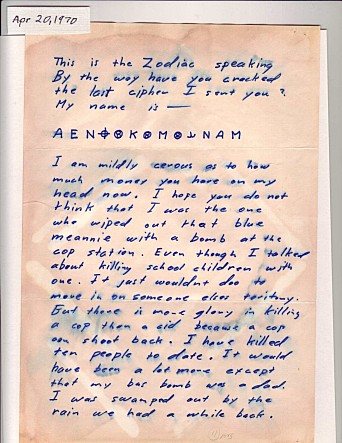 Apr 20, 1970
This is the Zodiac speaking
By the way have you cracked
the last cipher I sent you ?
My name is —
A E N ⌖ ⑧ K ⑧ M ⑧ ⅃ N A M
I am mildly cerous as to how
much money you have on my
head now. I hope you do not
think that I was the one
who wiped out that blue
meannie with a bomb at the
cop station. Even though I talked
about killing school children with
one. It just wouldnt doo to
move in on someone elses teritory.
But there is more glory in killing
a cop than a cid because a cop
can shoot back. I have killed
ten people to date. It would
have been a lot more except
that my bus bomb was a dud.
I was swamped out by the
rain we had a while back.